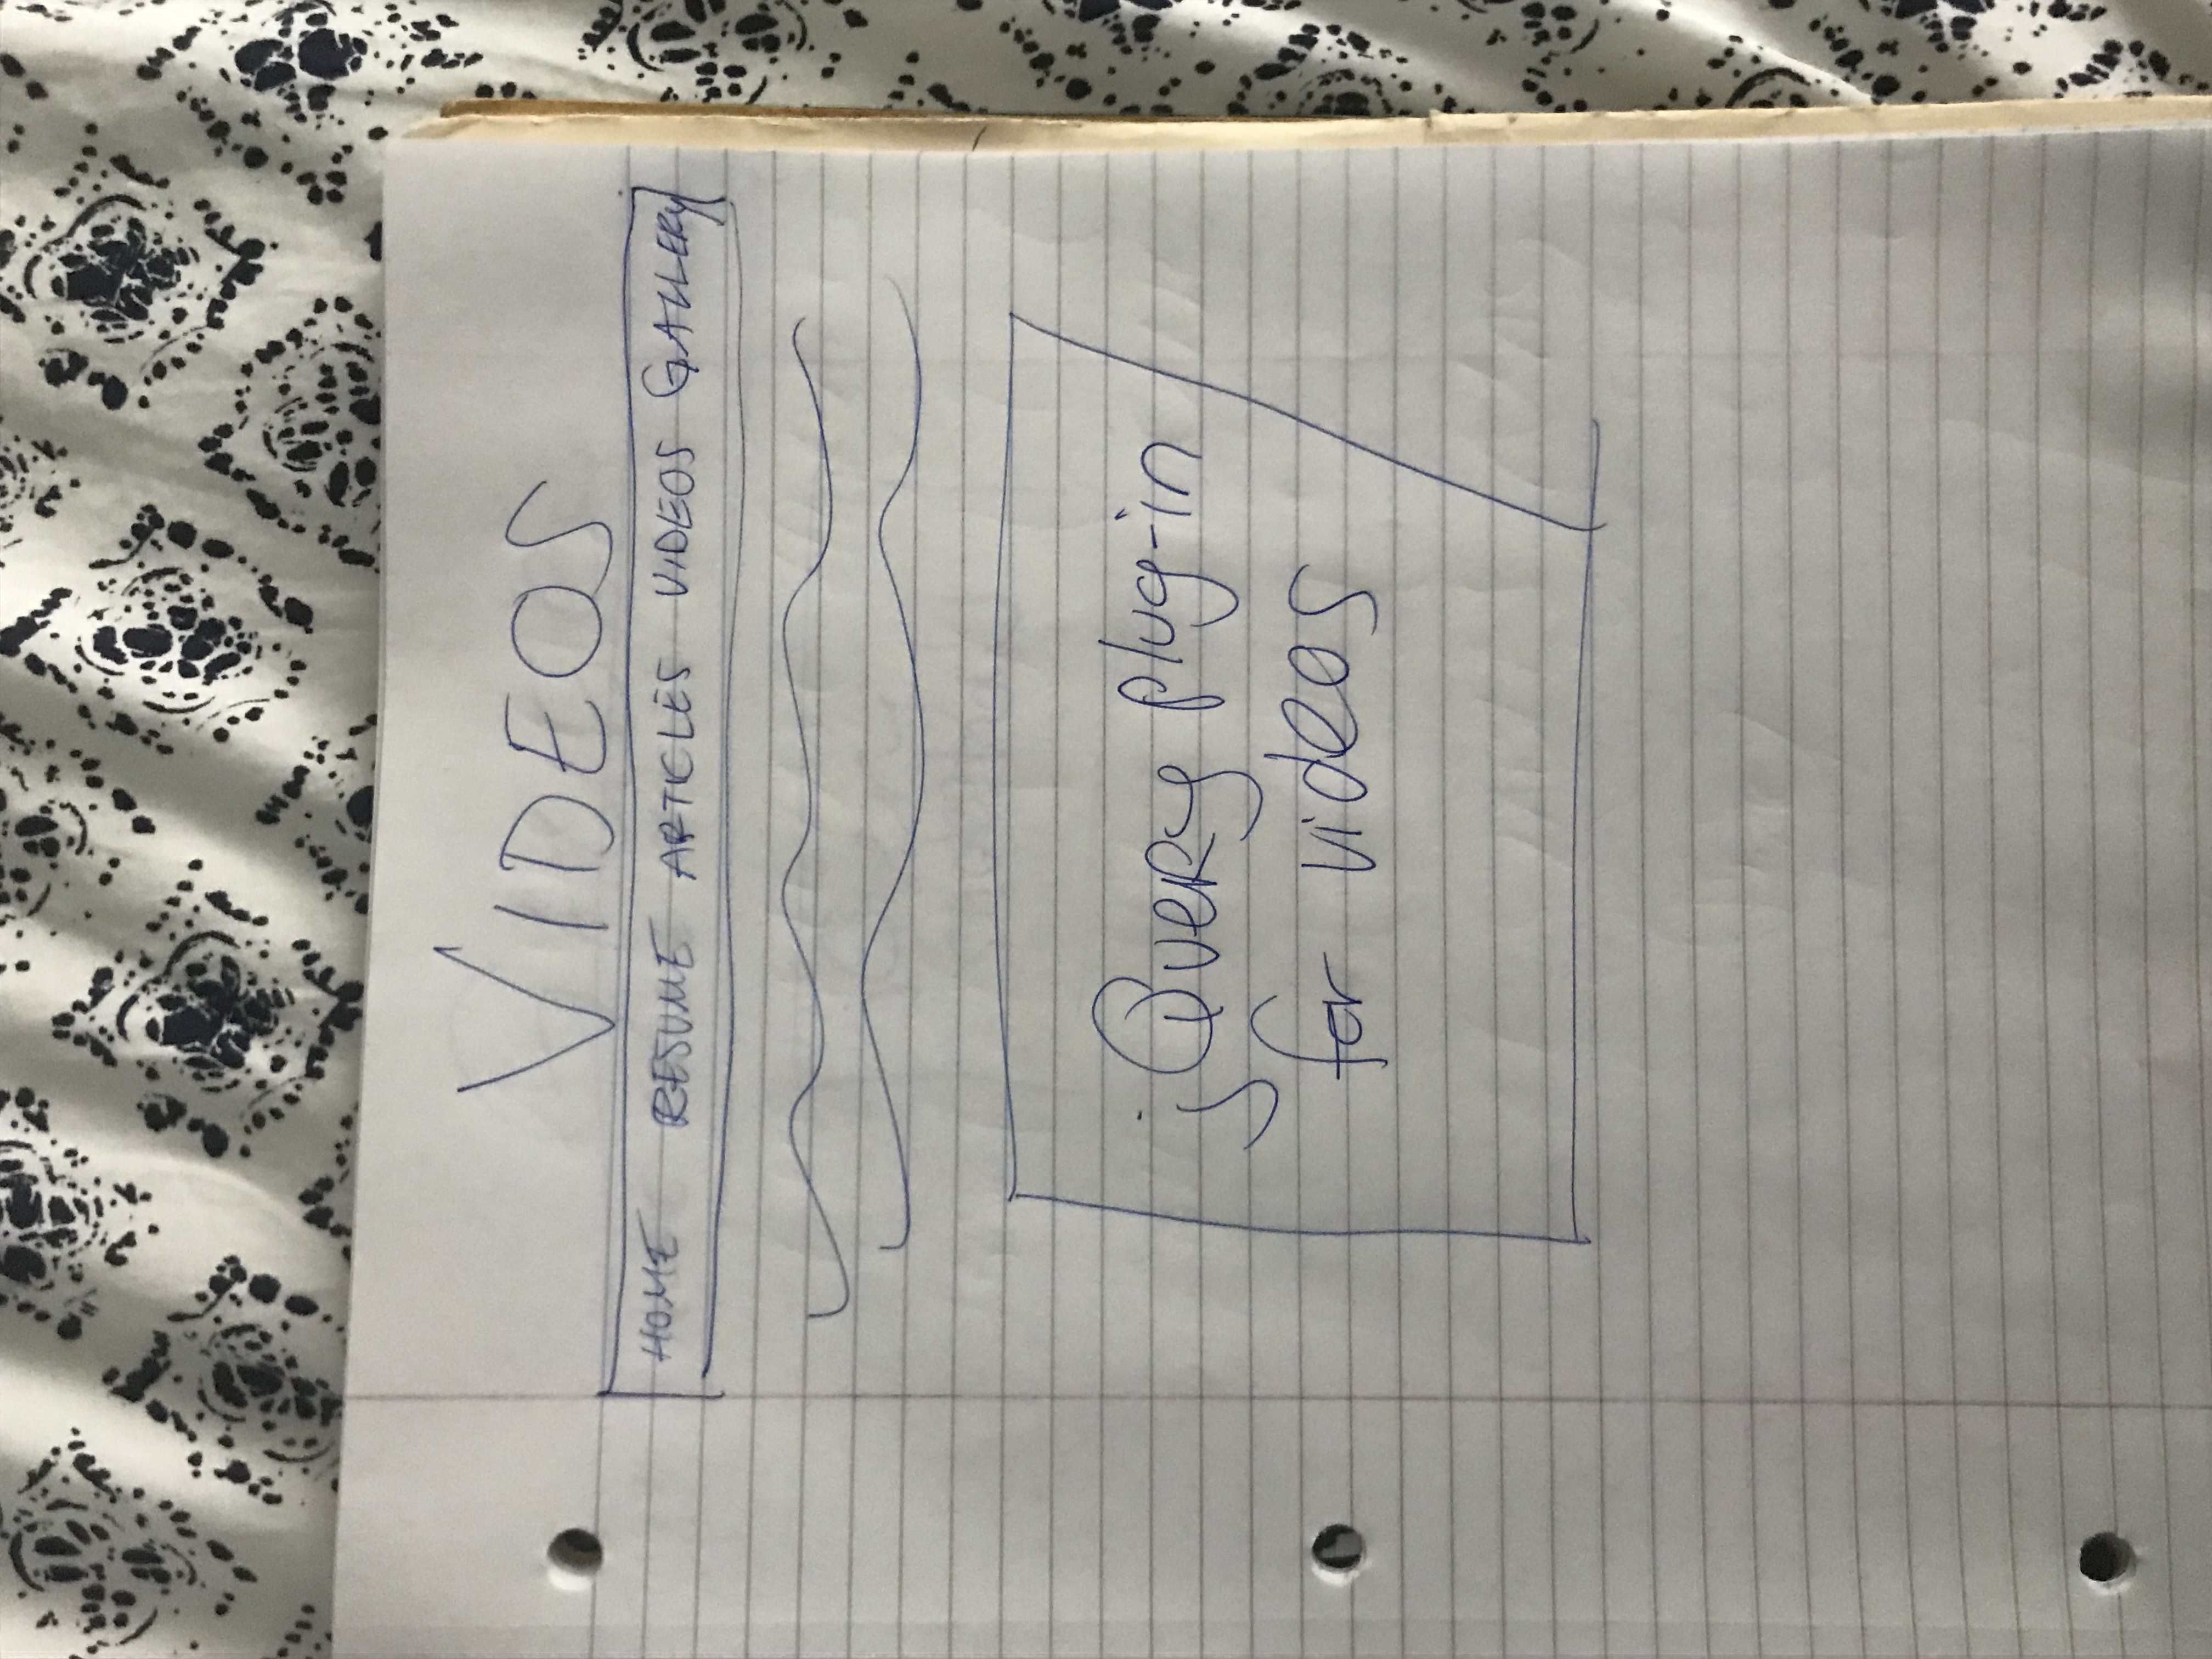 VIDEOS
HOME RESUME ARTICLES VIDEOS GALLERY
jQuery plug-in
for videos